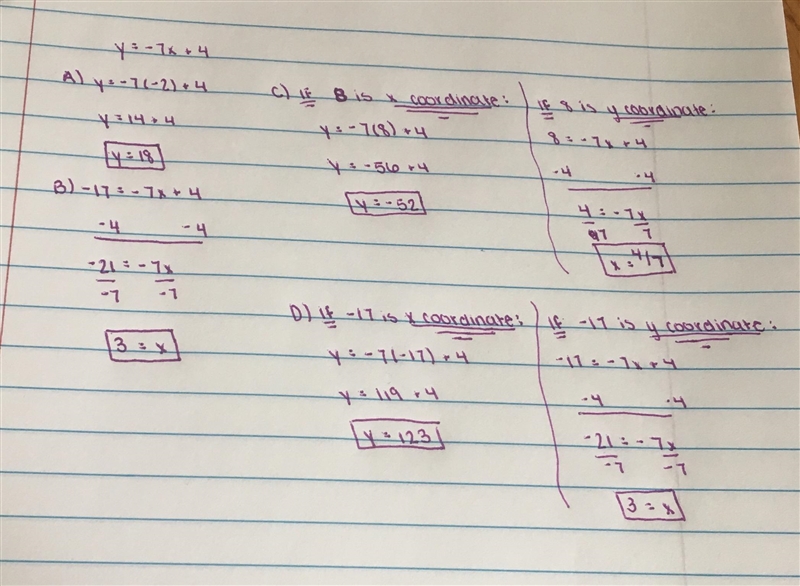 y = -7x + 4
A) y = -7(-2) + 4
y = 14 + 4
y = 18
B) -17 = -7x + 4
-4 -4
-21 = -7x
-7 -7
3 = x
C) IF 8 is x coordinate:
y = -7(8) + 4
y = -56 + 4
y = -52
IF 8 is y coordinate:
8 = -7x + 4
-4 -4
4 = -7x
7 7
x = 4/7
D) IF -17 is x coordinate:
y = -7(-17) + 4
y = 119 + 4
y = 123
IF -17 is y coordinate:
-17 = -7x + 4
-4 -4
-21 = -7x
-7 -7
3 = x